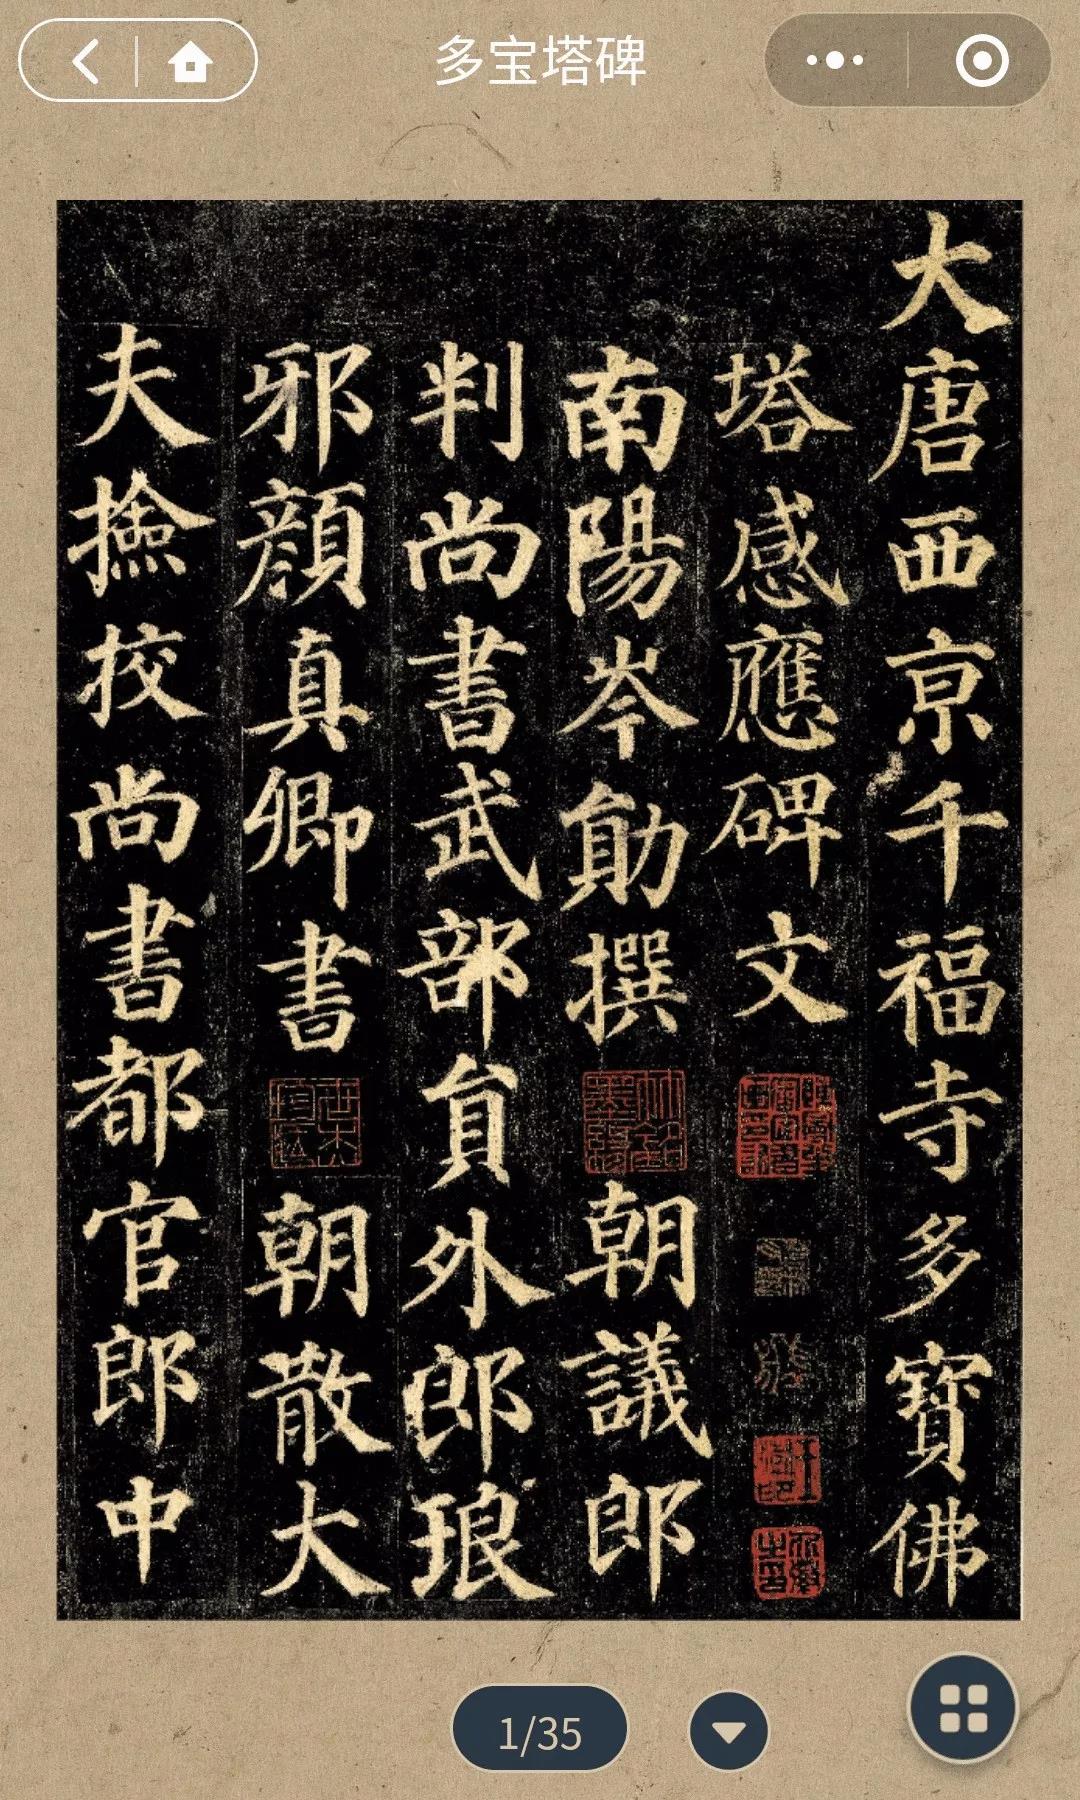 多宝塔碑
大唐西京千福寺多寶佛
塔感應碑文
南陽岑勛撰 朝議郎
判尚書武部員外郎琅
邪顏真卿書 朝散大
夫撿挍尚書都官郎中
1/35